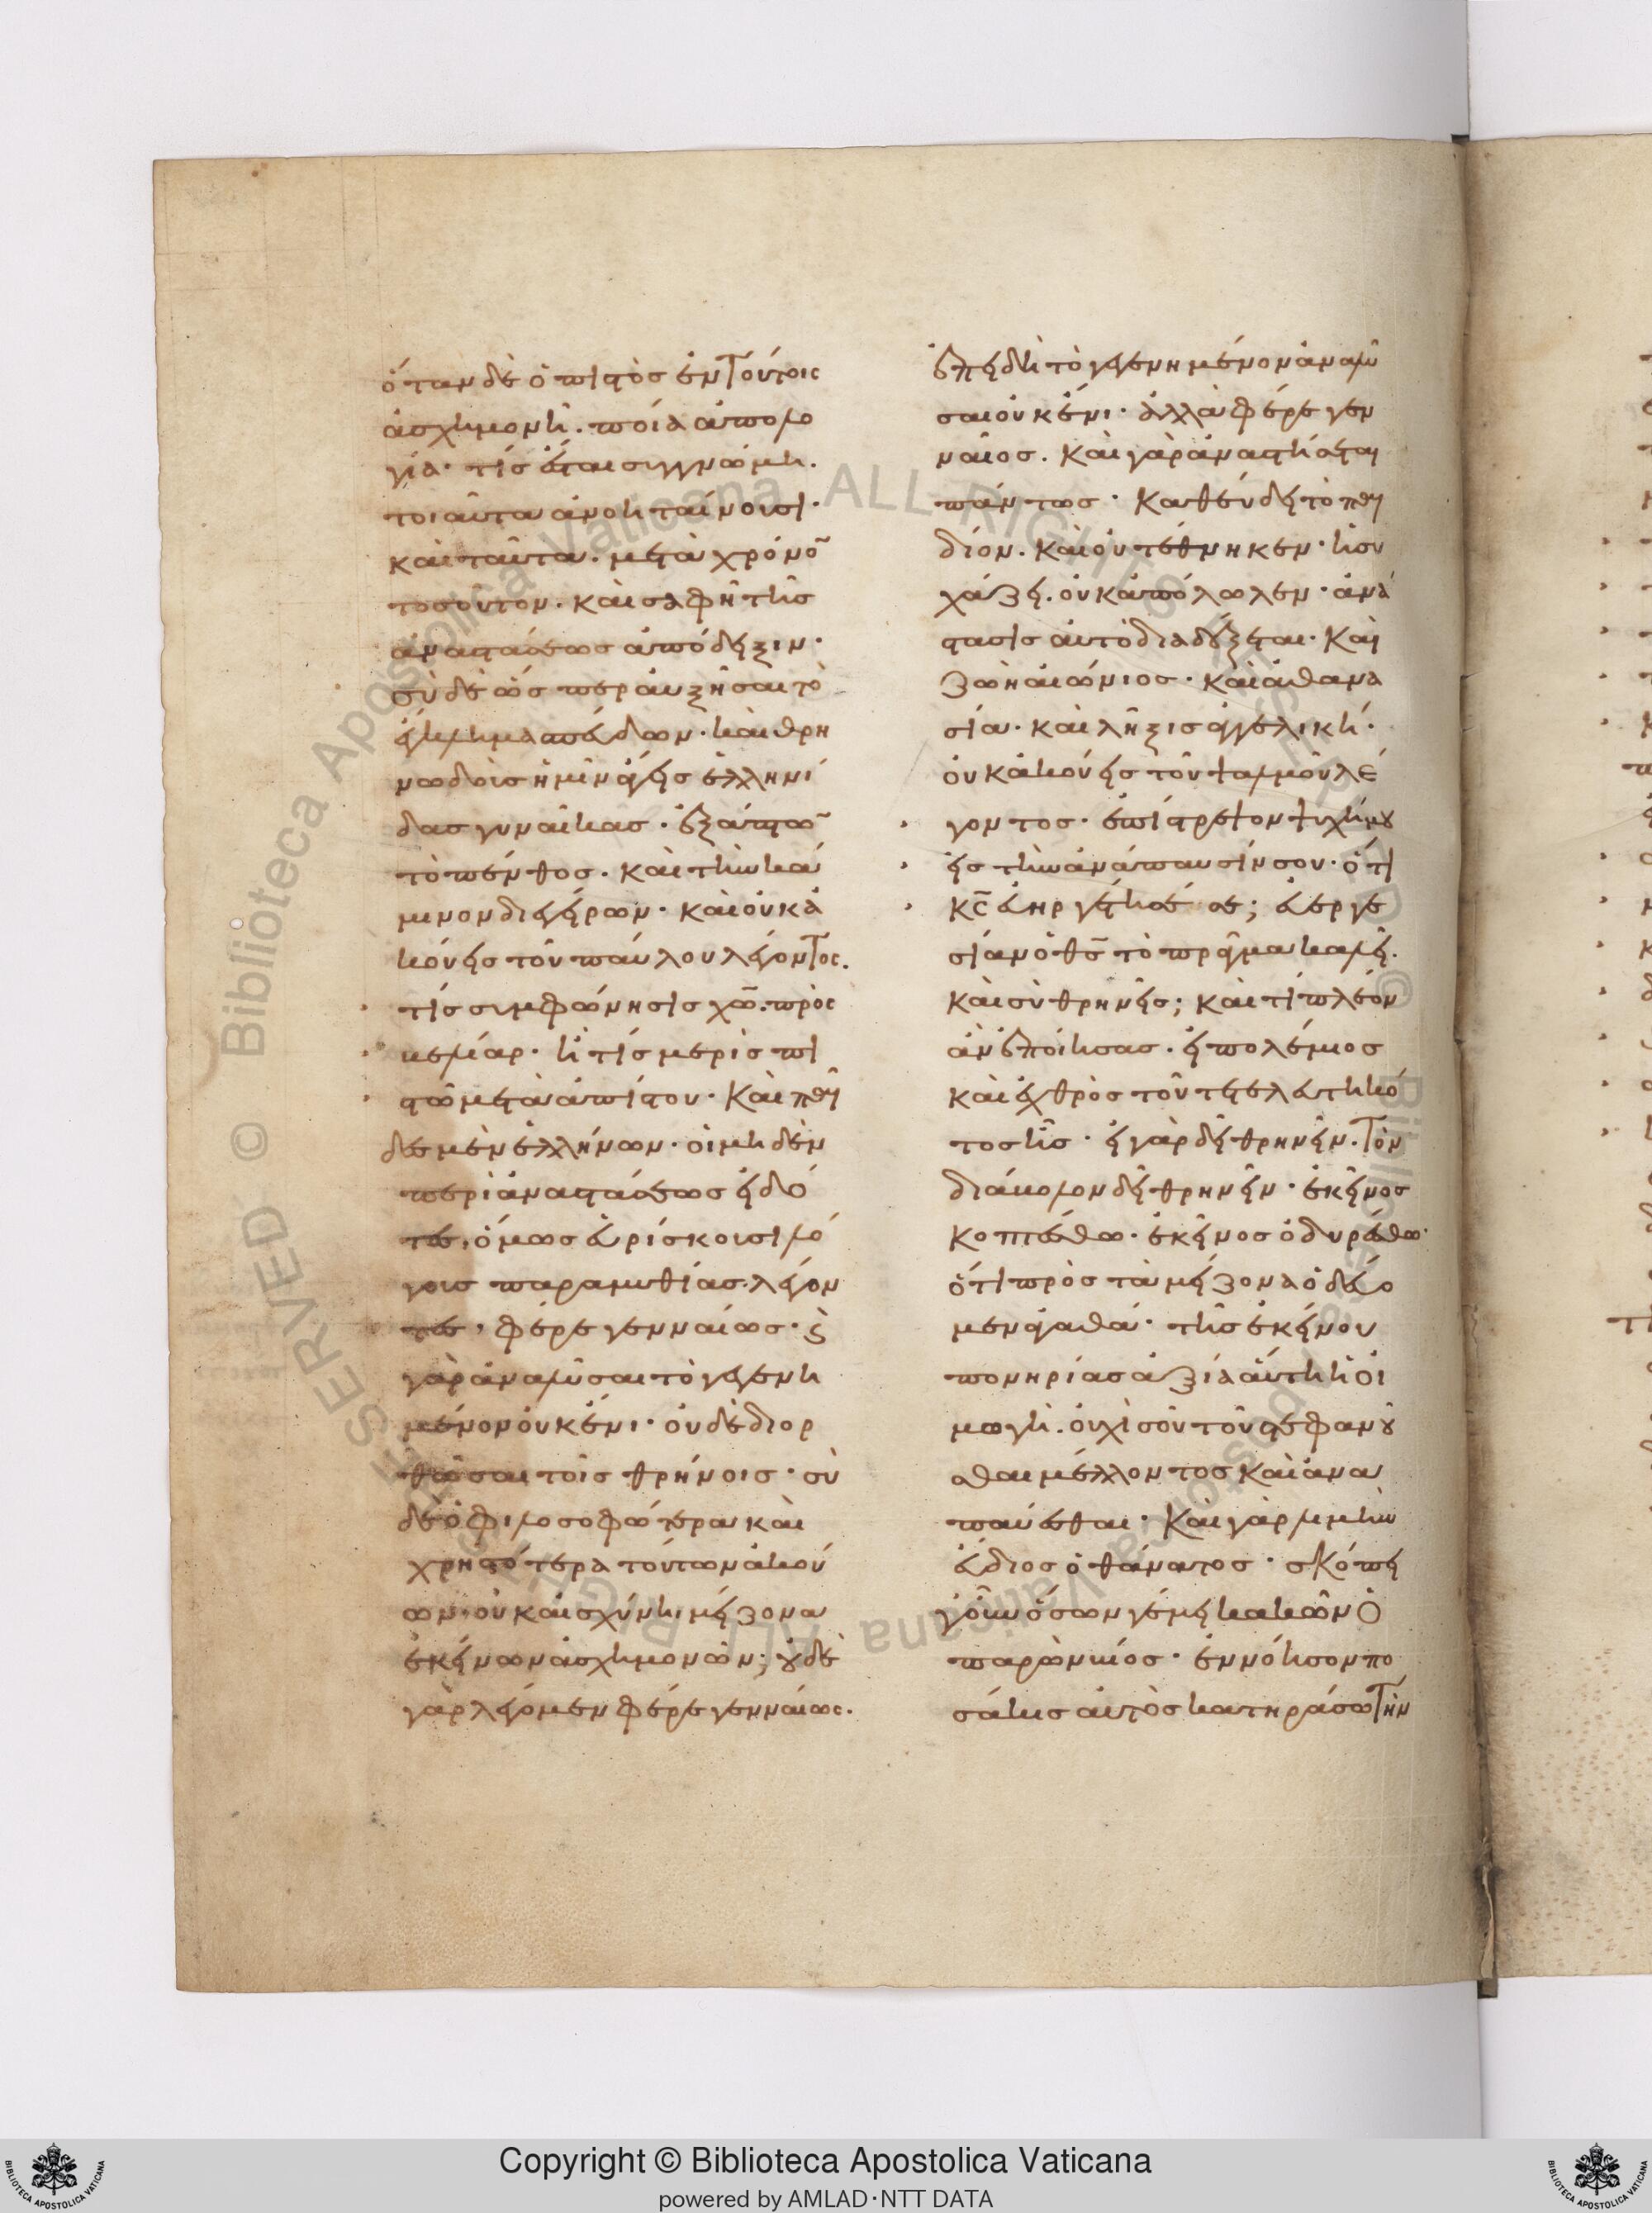 ὅταν δὲ ὁ πιστὸς ἐν τούτοις
ἀσχημονῇ. ποία ἀπολο
γία· τίς ἔσται συγγνώμη.
τοιαῦτα ἀνοηταίνουσι·
καὶ ταῦτα. μετὰ χρόνο̅
τοσοῦτον. καὶ σαφῆ τῆς
ἀναστάσεως ἀπόδειξιν·
σὺ δὲ ὡς περ αὐξῆσαι τὸ
ἔγκλημα σπεύδων· καὶ θρη
νωδοὺς ἡμῖν ἄγεις ἑλληνί
δας γυναῖκας· ἐξάπτω̅
τὸ πένθος. καὶ τὴν κά
μινον διεγείρων· καὶ οὐκ ἀ
κούεις τοῦ παύλου λέγοντος.
τίς συμφώνησις χω̅. πρὸς
βελίαρ· ἢ τίς μερὶς πι
στῶ μετὰ ἀπίστου· Καὶ παῖ
δες μὲν ἑλλήνων· οἱ μηδὲν
περὶ ἀναστάσεως εἰδό
τες, ὅμως εὑρίσκουσι λό
γους παραμυθίας. λέγον
τες, φέρε γενναίως· ϛ̀
γὰρ ἀναλῦσαι τὸ γεγενη
μένον οὐκ ἔνι· οὐδὲ διορ
θῶσαι τοῖς θρήνοις· σὺ
δὲ ὁ φιλοσοφώτερα καὶ
χρηστότερα τούτων ἀκού
ων, οὐκ αἰσχύνη μείζονα
ἐκείνων ἀσχημονῶν; ȣ̓δὲ
γὰρ λέγομεν φέρε γενναίως.
ἐπειδὴ τὸ γεγενημένον ἀναλῦ
σαι οὐκ ἔνι· ἀλλὰ φέρε γεν
ναίως. Καὶ γὰρ ἀναστήσεται
πάντως· Καθεύδει τὸ παι
δίον. καὶ οὐ τέθνηκεν· ἡσυ
χάζει. οὐκ ἀπόλωλεν· ἀνά
στασις αὐτὸ διαδέξεται· Καὶ
ζωὴ αἰώνιος· καὶ ἀθανα
σία· καὶ λῆξις ἀγγελική·
οὐκ ἀκούεις τοῦ ψαλμοῦ λέ
γοντος· ἐπίστρεψον ψυχή μȣ
εἰς τὴν ἀνάπαυσίν σου· ὅτι
κ̅ς̅ εὐηργέτησέ σε; εὐεργε
σίαν ὁ θ̅ς̅ τὸ πρᾶγμα καλεῖ.
καὶ σὺ θρηνεῖς; καὶ τί πλέον
ἂν ἐποίησας. εἰ πολέμιος
καὶ ἐχθρὸς τοῦ τετελευτηκό
τος ἦς· εἰ γὰρ δεῖ θρηνεῖν. τὸν
διάβολον δεῖ θρηνεῖν· ἐκεῖνος
κοπτέσθω· ἐκεῖνος ὀδυρέσθω·
ὅτι πρὸς τὰ μείζονα ὁδεύο
μεν ἀγαθά· τῆς ἐκείνου
πονηρίας ἀξία αὕτη ἡ οἰ
μωγὴ. οὐχὶ σοῦ τοῦ στεφανȣ͂
σθαι μέλλοντος καὶ ἀνα
παύεσθαι· Καὶ γὰρ λιμὴν
εὔδιος ὁ θάνατος· σκόπει
γοῦν ὅσων γέμει κακῶν ὁ
παρὼν βίος· ἐννόησον πο
σάκις αὐτὸς κατηράσω τὴν